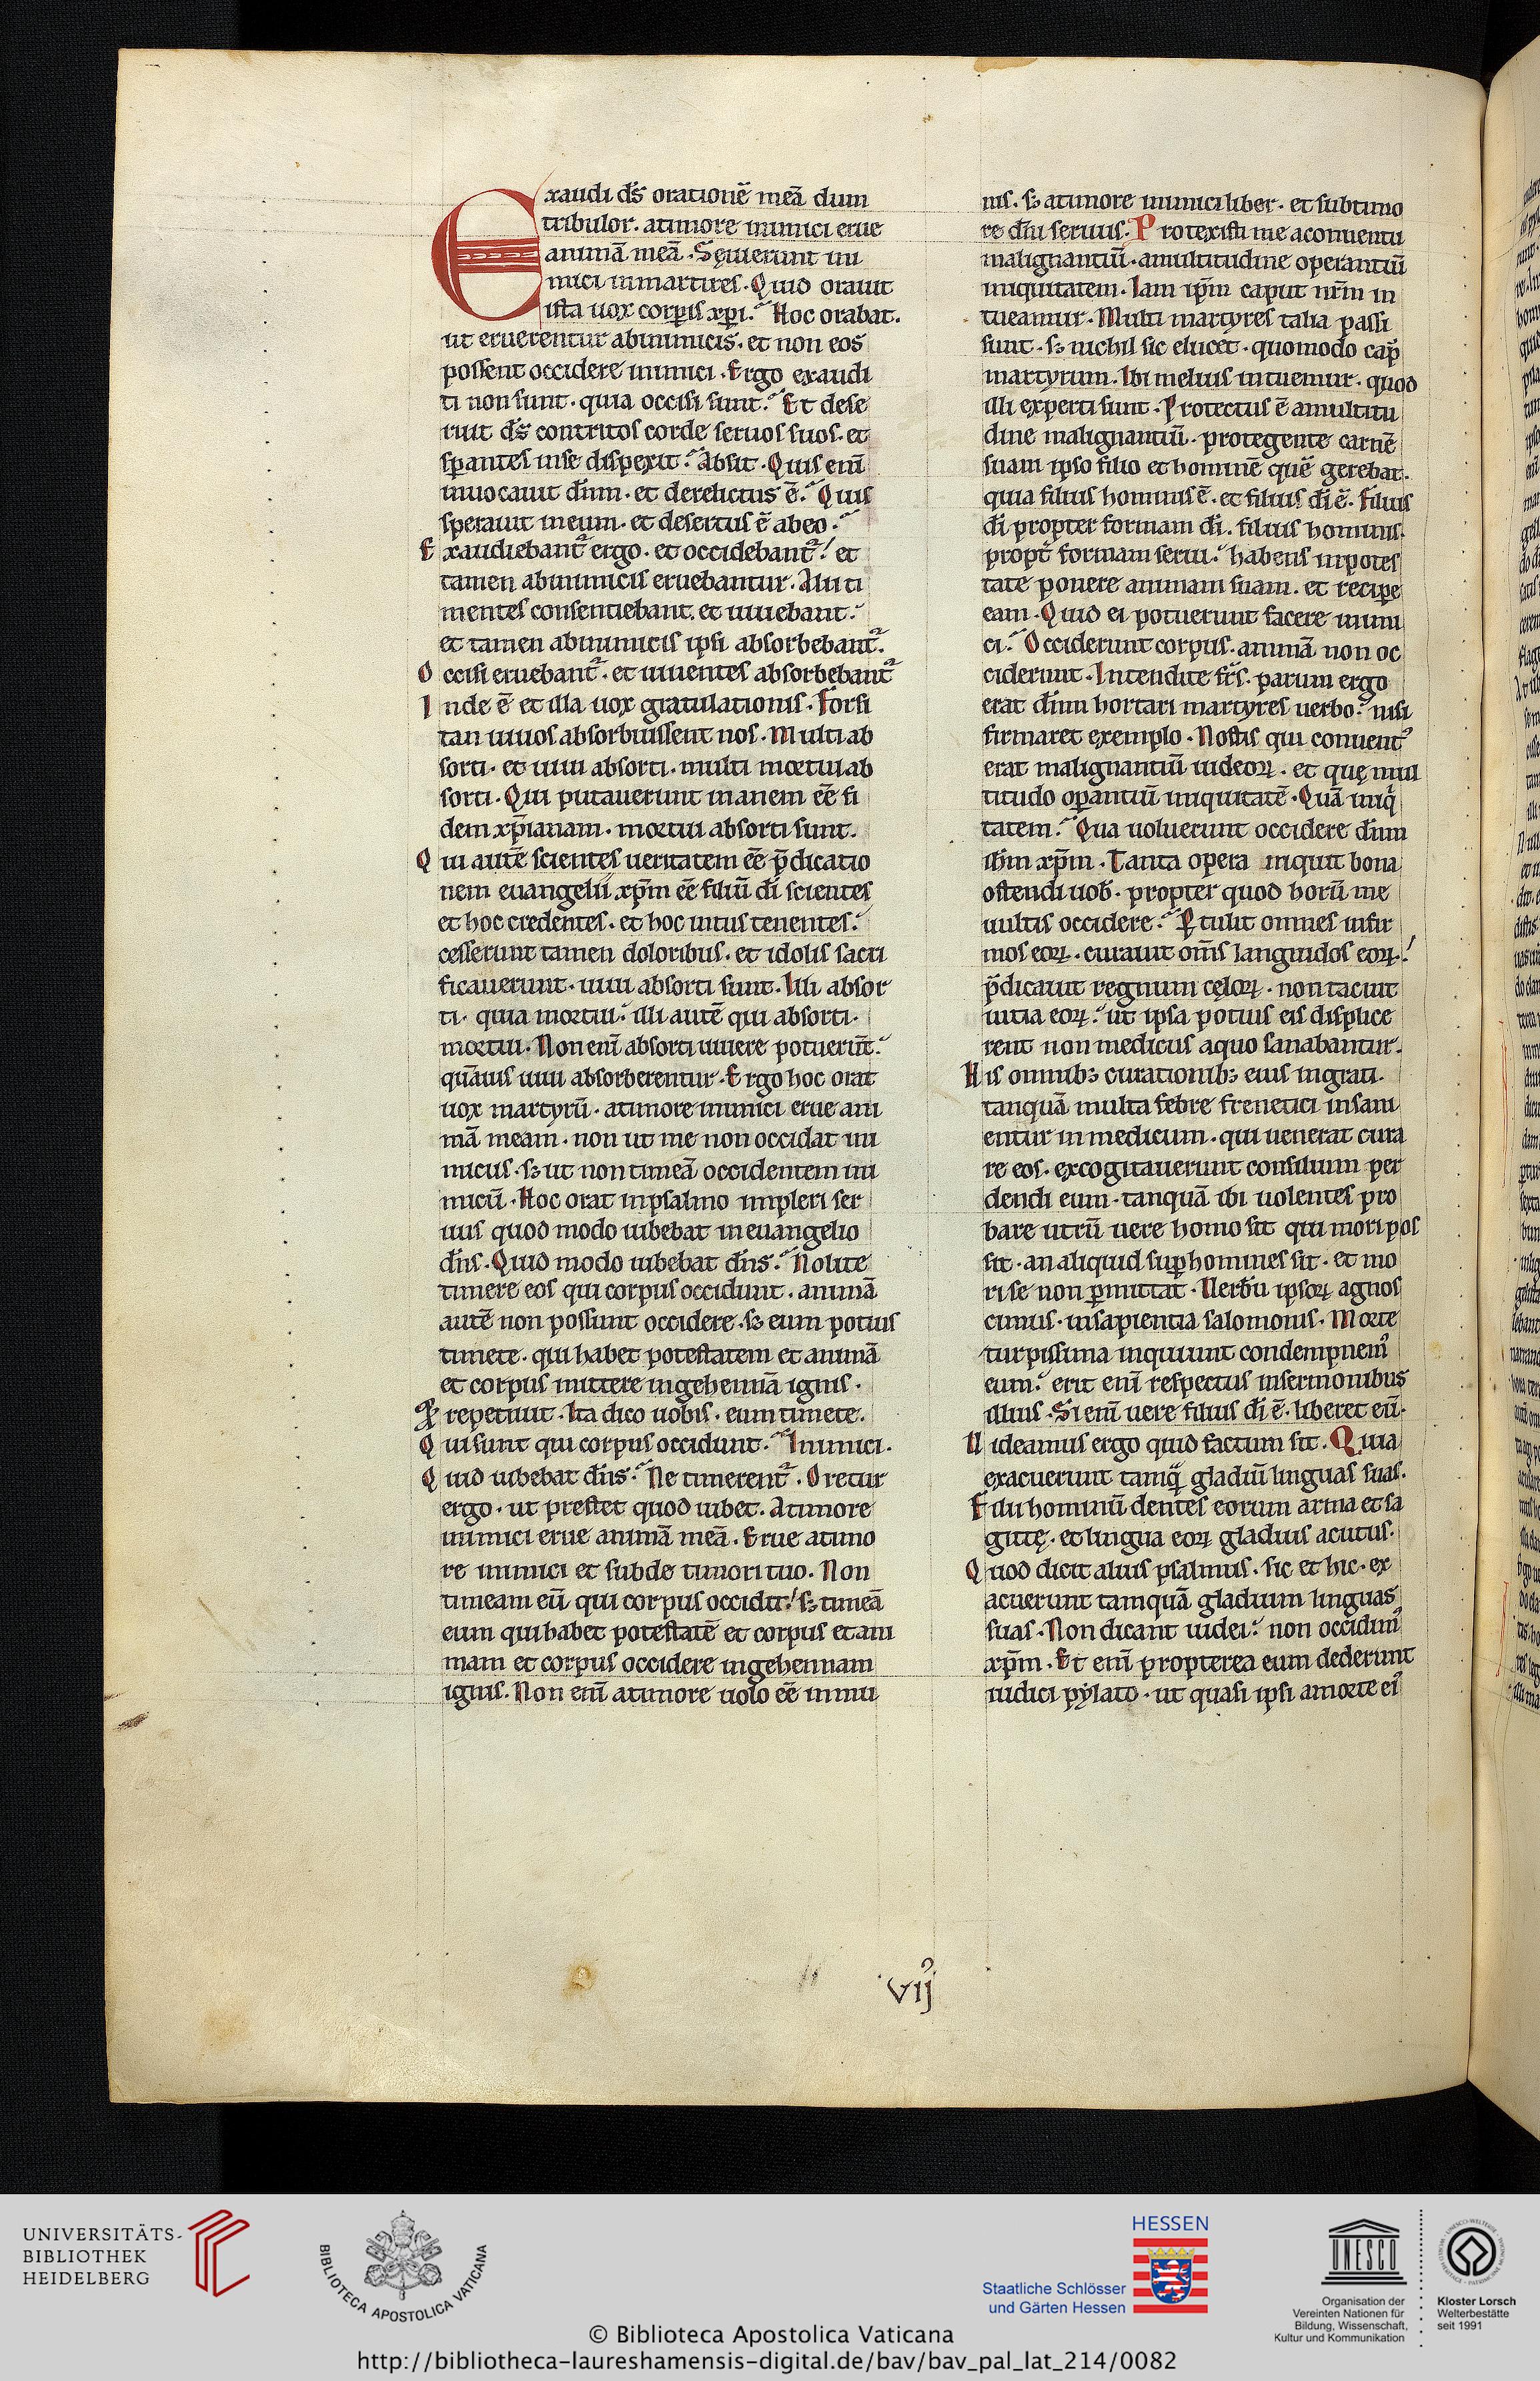 Exaudi d̄s orationē meā dum
tribulor. a timore inimici erue
animā meā. Sęuierunt ini
mici in martires. Quid orauit
ista uox corꝑis xp̄i. Hoc orabat.
ut eruerentur ab inimicis. et non eos
possent occidere inimici. Ergo exaudi
ti non sunt. quia occisi sunt. Et dese
ruit d̄s contritos corde seruos suos. et
sꝑantes in se dispexit. Absit. Quis enī
inuocauit dn̄m. et derelictus ē. Quis
sperauit in eum. et desertus ē ab eo.
Exaudiebant᷑ ergo. et occidebant᷑! et
tamen ab inimicis eruebantur. Alii ti
mentes consentiebant. et uiuebant.
et tamen ab inimicis ipsi absorbebant᷑.
Occisi eruebant᷑. et uiuentes absorbebant᷑
Inde ē et illa uox gratulationis. Forsi
tan uiuos absorbuissent nos. Multi ab
sorti. et uiui absorti. multi mortui ab
sorti. Qui putauerunt inanem eē fi
dem xp̄ianam. mortui absorti sunt.
Qui autē scientes ueritatem eē p̄dicatio
nem euangelii xp̄m eē filiū dī scientes
et hoc credentes. et hoc intus tenentes.
cesserunt tamen doloribus. et idolis sacri
ficauerunt. uiui absorti sunt. Illi absor
ti. quia mortui. illi autē qui absorti.
mortui. Non enī absorti uiuere potuer̄t.
quāuis uiui absorberentur. Ergo hoc orat
uox martyrū. a timore inimici erue ani
mā meam. non ut me non occidat ini
micus. sꝫ ut non timeā occidentem ini
micū. Hoc orat in psalmo impleri ser
uus quod modo iubebat in euangelio
dn̄s. Quid modo iubebat dn̄s. Nolite
timere eos qui corpus occidunt. animā
autē non possunt occidere. sꝫ eum potius
timete. qui habet potestatem et animā
et corpus mittere in gehennā ignis.
Et repetiuit. Ita dico uobis. eum timete.
Qui sunt qui corpus occidunt. Inimici.
Quid iubebat dn̄s. Ne timerent᷑. Oretur
ergo. ut prestet quod iubet. A timore
inimici erue animā meā. Erue a timo
re inimici et subde timori tuo. Non
timeam eū qui corpus occidit! sꝫ timeā
eum qui habet potestatē et corpus et ani
mam et corpus occidere in gehennam
ignis. Non enī a timore uolo eē inmu
nis. sꝫ a timore inimici liber. et sub timo
re dn̄i seruus. Protexisti me a conuentu
malignantiū. a multitudine operantiū
iniquitatem. Iam ip̄m caput nr̄m in
tueamur. Multi martyres talia passi
sunt. sꝫ nichil sic elucet. quomodo cap̄
martyrum. Ibi melius intuemur. quod
illi experti sunt. Protectus ē a multitu
dine malignantiū. protegente carnē
suam ipso filio et hominē quē gerebat.
quia filius hominis ē. et filius dī ē. filius
dī propter formam dī. filius hominis.
propt̄ formam serui. habens in potes
tate ponere animam suam. et reciꝑe
eam. Quid ei potuerunt facere inimi
ci. Occiderunt corpus. animā non oc
ciderunt. Intendite fr̄s. parum ergo
erat dn̄m hortari martyres uerbo. nisi
firmaret exemplo. Nostis qui conuent᷒
erat malignantiū iudeoꝝ. et quę mul
titudo oꝑantiū iniquitatē. Quā iniq̄
tatem. Qua uoluerunt occidere dn̄m
ih̄m xp̄m. Tanta opera inquit bona
ostendi uob. propter quod horū me
uultis occidere. Ꝑtulit omnes infir
mos eoꝝ. curauit om̄s languidos eoꝝ!
p̄dicauit regnum cęloꝝ. non tacuit
uitia eoꝝ. ut ipsa potius eis displice
rent non medicus a quo sanabantur.
His omnibꝫ curationibꝫ eius ingrati.
tanquā multa febre frenetici insani
entur in medicum. qui uenerat cura
re eos. excogitauerunt consilium per
dendi eum. tanquā ibi uolentes pro
bare utrū uere homo sit qui mori pos
sit. an aliquid suꝑ homines sit. et mo
ri se non ꝑmittat. Uerbū ipsoꝝ agnos
cimus. in sapientia salomonis. Morte
turpissima inquiunt condempnem᷒
eum. erit enī respectus in sermonibus
illius. Si enī uere filius dī ē. liberet eū.
Uideamus ergo quid factum sit. Quia
exacuerunt tamq̄ gladiū linguas suas.
Filii hominū dentes eorum arma et sa
gittę. et lingua eoꝝ gladius acutus.
Quod dicit alius psalmus. sic et hic. ex
acuerunt tamquā gladium linguas
suas. Non dicant iudei. non occidim᷒
xp̄m. Et enī propterea eum dederunt
iudici pylato. ut quasi ipsi a morte ei᷒
vij᷒
UNIVERSITÄTS-
BIBLIOTHEK
HEIDELBERG
BIBLIOTECA APOSTOLICA VATICANA
HESSEN
Staatliche Schlösser
und Gärten Hessen
UNESCO
Organisation der
Vereinten Nationen für
Bildung, Wissenschaft,
Kultur und Kommunikation
Kloster Lorsch
Welterbestätte
seit 1991
© Biblioteca Apostolica Vaticana
http://bibliotheca-laureshamensis-digital.de/bav/bav_pal_lat_214/0082